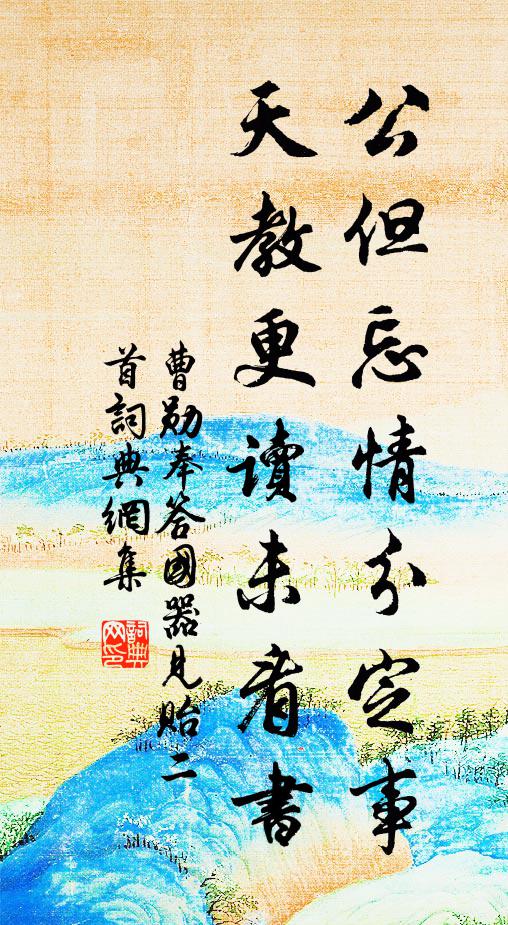 公但忘情分定事
天教更讀未看書
曹勛奉答國器見貽二
首詞典網集
詞典
网印